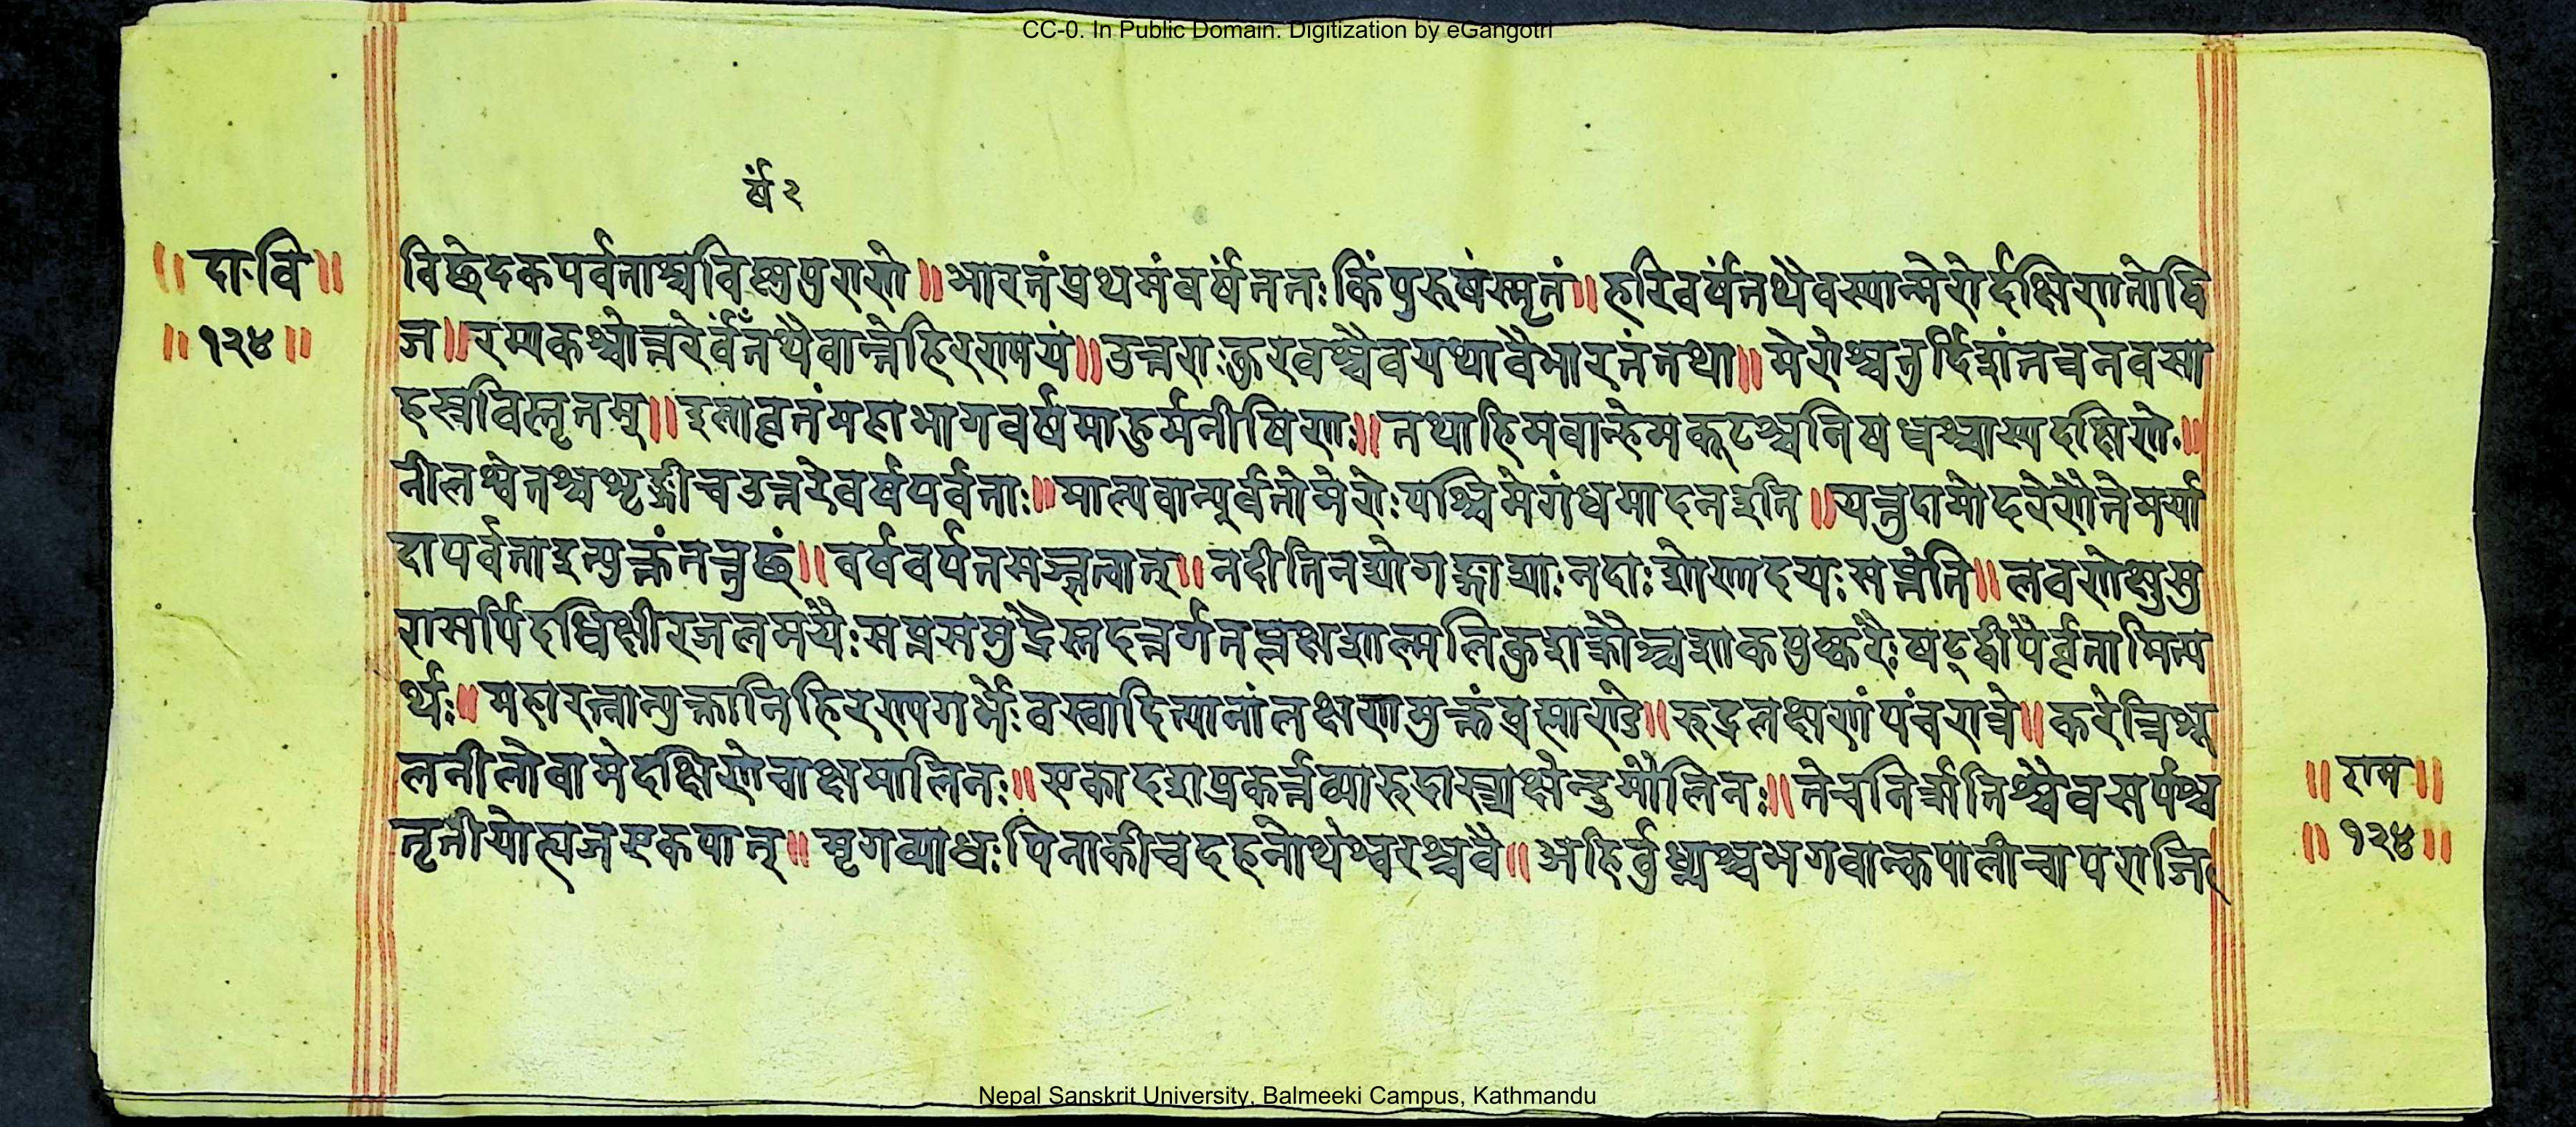 CC-0. In Public Domain. Digitization by eGangotri
र्षं २
॥ दा॰वि ॥
॥ १२४ ॥
विछेदकपर्वताश्चविष्णुपुराणे ॥ भारतंप्रथमंवर्षंततः किंपुरुषंस्मृतं ॥ हरिवर्षंतथैवस्यान्मेरोर्दक्षिणतोद्वि
ज ॥ रम्यकश्चोत्तरेर्वंतथैवान्तेहिरण्मयं ॥ उत्तराःकुरवश्चैवयथावैभारतंतथा ॥ मेरोश्चतुर्दिशंतत्रनवसा
हस्रविस्तृतम् ॥ इलावृतंमहाभागवर्षमाहुर्मनीषिणः ॥ तथाहिमवान्हेमकूटश्चनिषधश्चास्यदक्षिणे ॥
नीलश्वेतश्चशृङ्गीचउत्तरेवर्षपर्वताः ॥ माल्यवान्पूर्वतोमेरोः पश्चिमेगंधमादनइति ॥ यत्तुदामोदरेणैतेमर्या
दापर्वताइत्युक्तंतत्तुछं ॥ वर्षवर्षतसज्ज्ञत्वात् ॥ नदीतिनद्योगङ्गाद्याः नदाः शोणादयः सप्तेति ॥ लवणेक्षुसु
रासर्पिदधिक्षीरजलमयैः सप्तसमुद्रैस्तदन्तर्गतप्लक्षशाल्मलिकुशक्रौञ्चशाकपुष्करैः षड्द्वीपैर्वृतामित्य
र्थः ॥ महारत्नान्युक्तानिहिरण्यगर्भेः वस्वादित्यानांलक्षणमुक्तंब्रह्माण्डे ॥ रुद्रलक्षणंपंचरात्रे ॥ करेत्रिशू
लनीलोवामेदक्षिणेचाक्षमालिनः ॥ एकादशप्रकर्त्तव्यारुद्रास्त्र्यक्षेन्दुमौलिनः ॥ तेचनिर्ऋतिश्चैवसर्पश्च
तृतीयोत्यजएकपात् ॥ मृगव्याधः पिनाकीचदहनोथेश्वरश्चवै ॥ अहिर्वुध्न्यश्चभगवान्कपालीचापराजि
॥ राम ॥
॥ १२४ ॥
Nepal Sanskrit University, Balmeeki Campus, Kathmandu